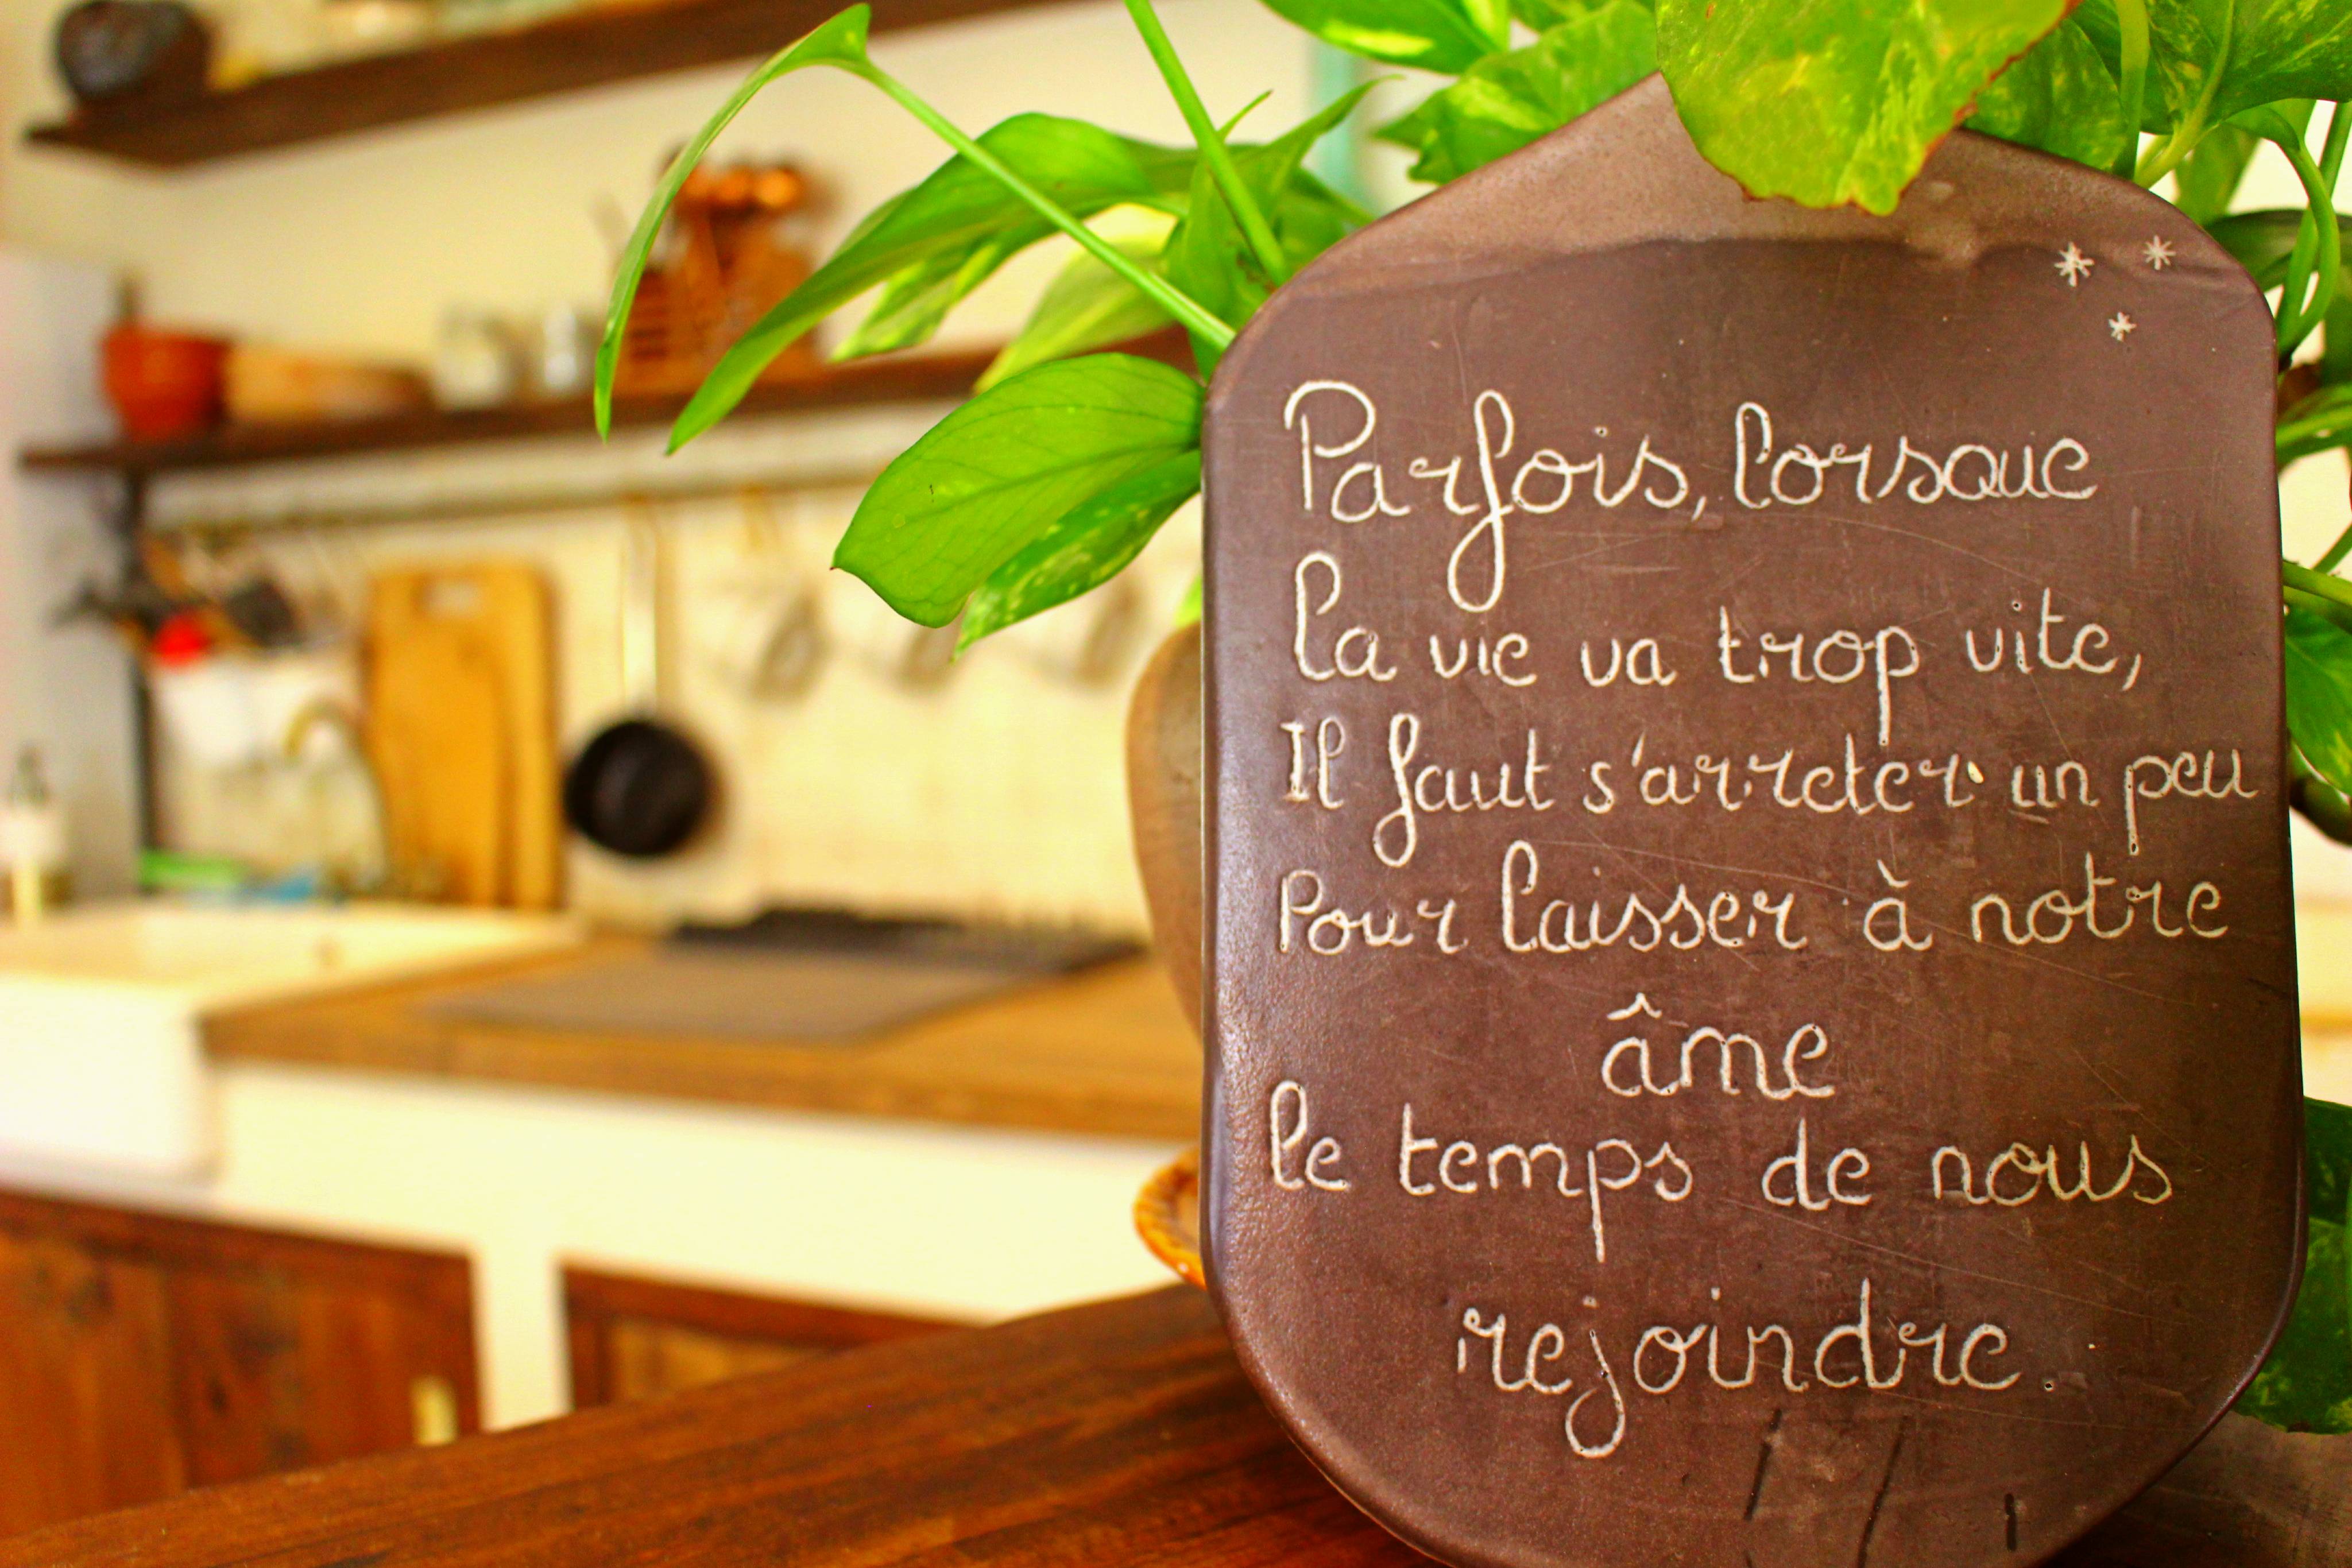 Parfois, lorsque
la vie va trop vite,
Il faut s'arreter un peu
Pour laisser à notre
âme
le temps de nous
rejoindre.